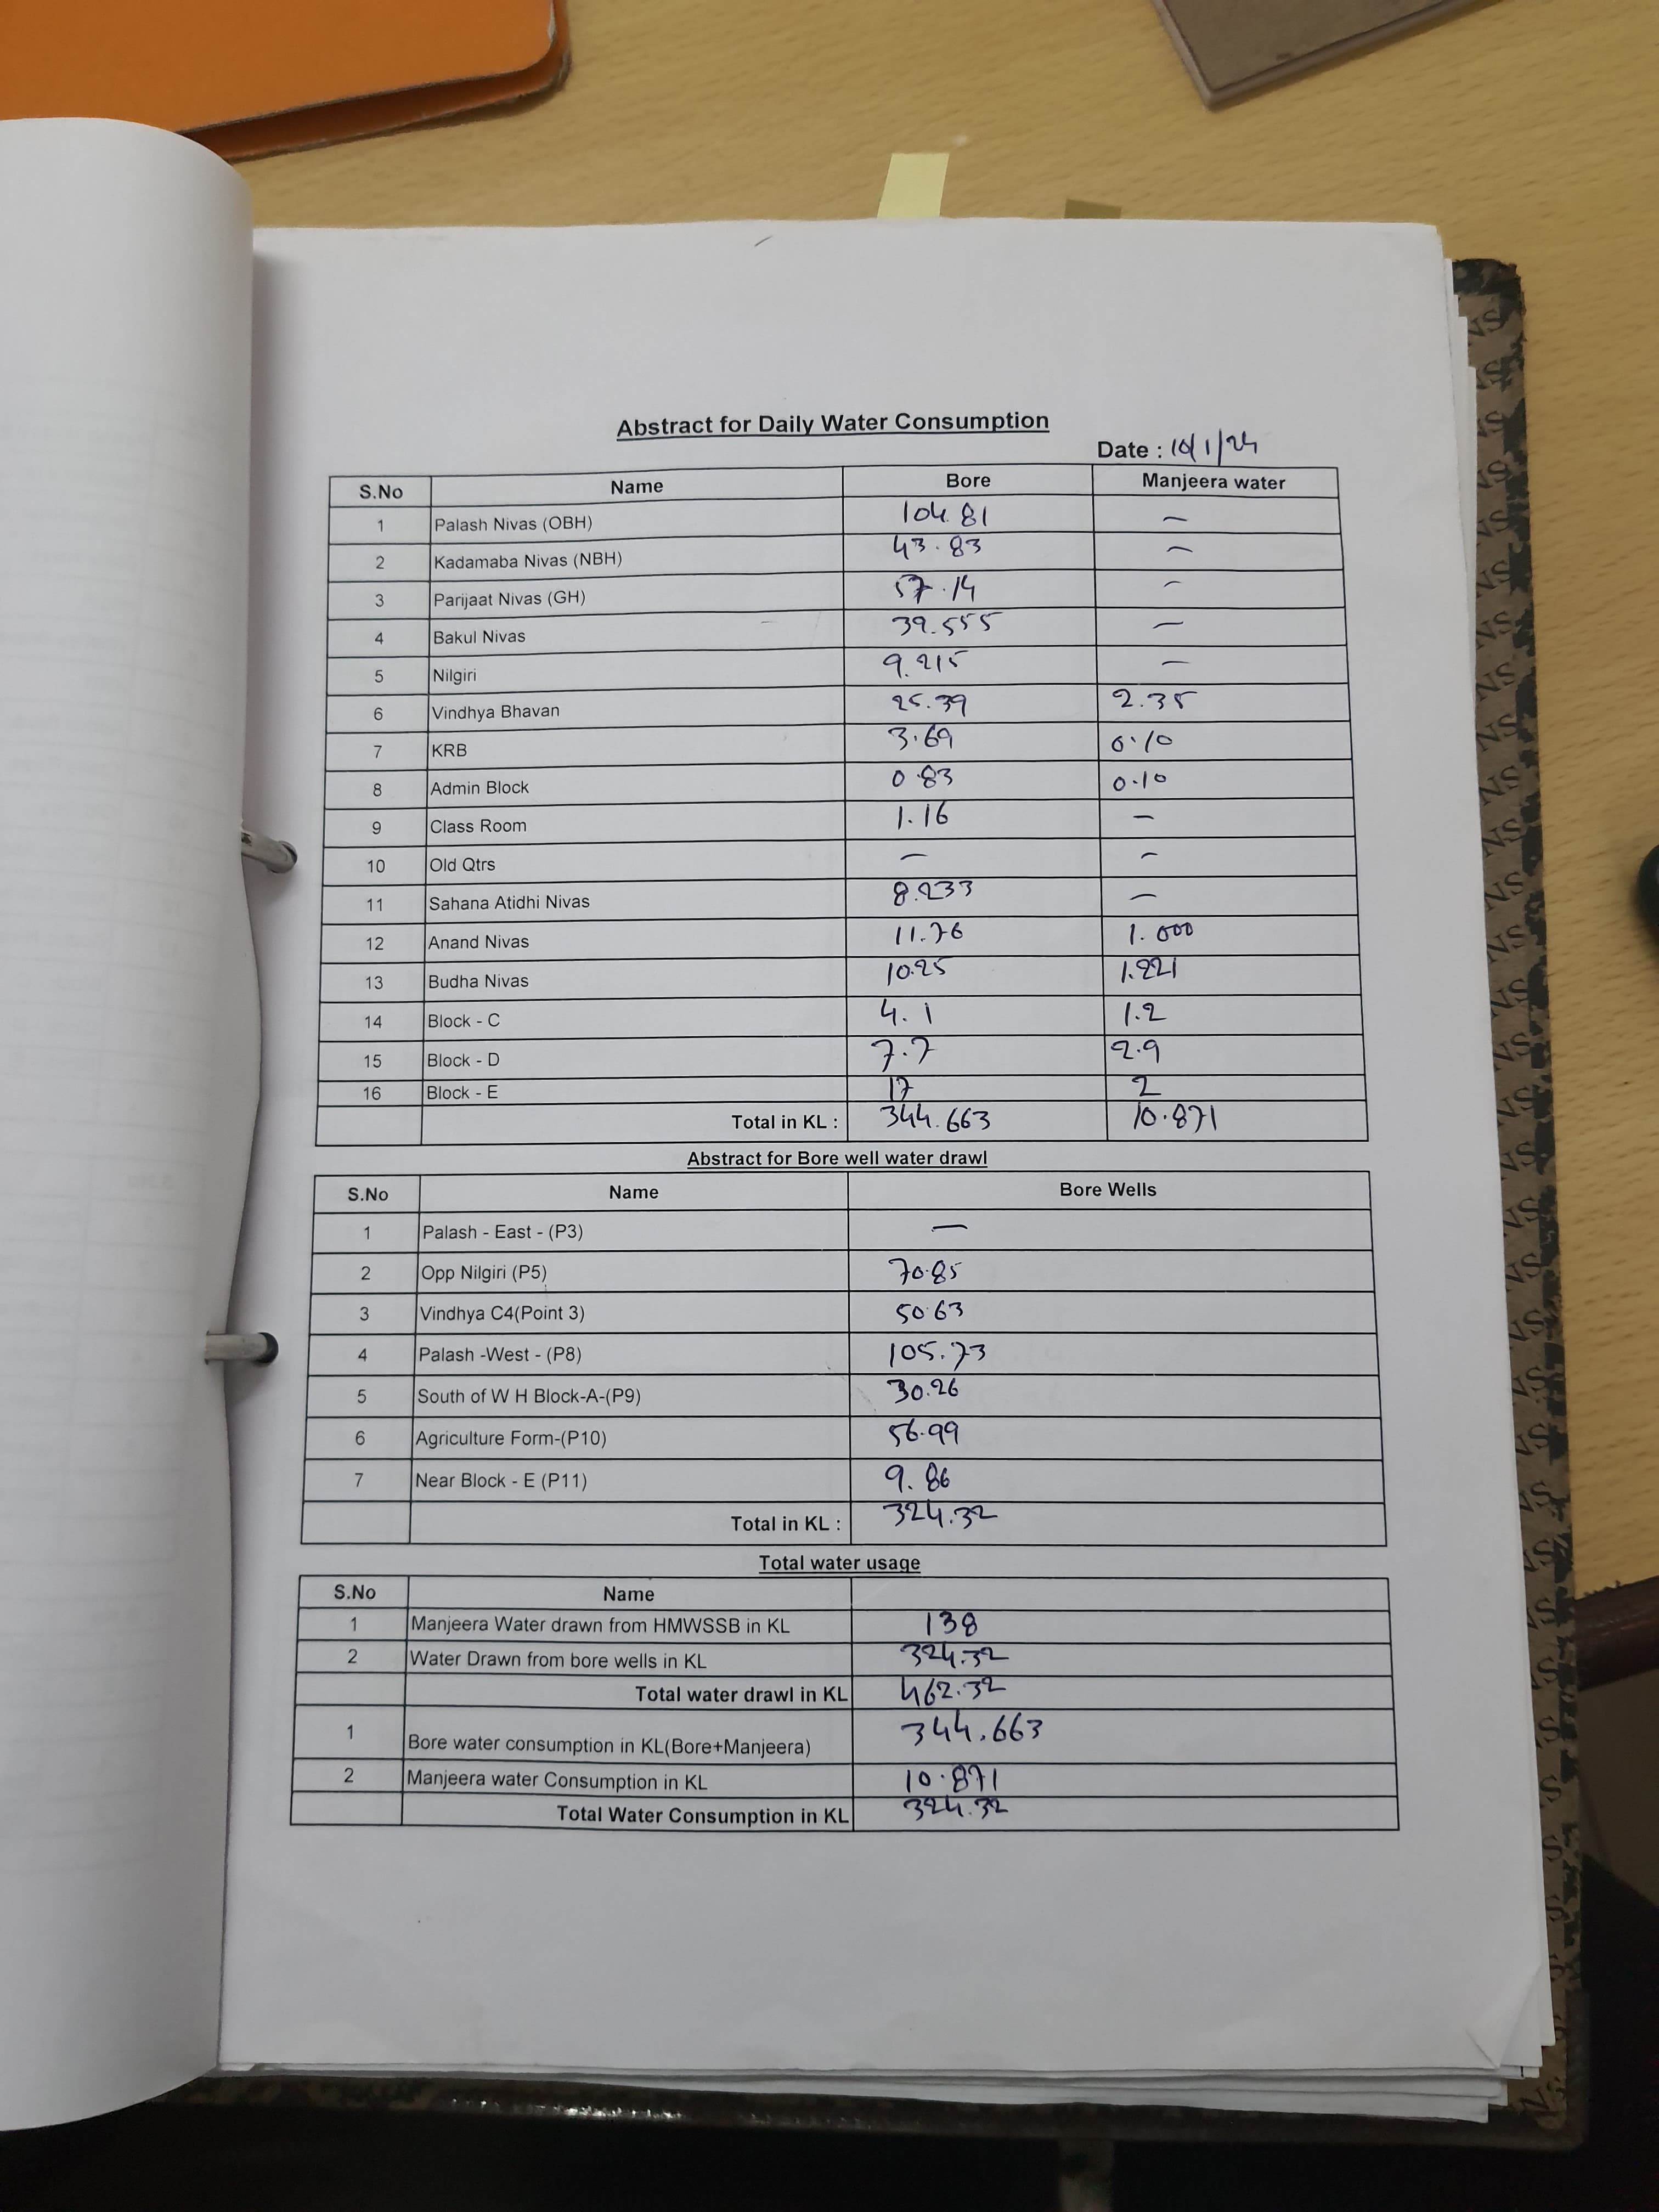 Abstract for Daily Water Consumption
Date : 10/1/24
S.No Name Bore Manjeera water
1 Palash Nivas (OBH) 104.81 —
2 Kadamaba Nivas (NBH) 43.83 —
3 Parijaat Nivas (GH) 57.14 —
4 Bakul Nivas 39.555 —
5 Nilgiri 9.215 —
6 Vindhya Bhavan 25.39 2.35
7 KRB 3.69 0.10
8 Admin Block 0.83 0.10
9 Class Room 1.16 —
10 Old Qtrs — —
11 Sahana Atidhi Nivas 8.233 —
12 Anand Nivas 11.76 1.000
13 Budha Nivas 10.25 1.221
14 Block - C 4.1 1.2
15 Block - D 7.7 2.9
16 Block - E 17 2
Total in KL : 344.663 10.871
Abstract for Bore well water drawl
S.No Name Bore Wells
1 Palash - East - (P3) —
2 Opp Nilgiri (P5) 70.85
3 Vindhya C4(Point 3) 50.63
4 Palash -West - (P8) 105.73
5 South of W H Block-A-(P9) 30.26
6 Agriculture Form-(P10) 56.99
7 Near Block - E (P11) 9.86
Total in KL : 324.32
Total water usage
S.No Name
1 Manjeera Water drawn from HMWSSB in KL 138
2 Water Drawn from bore wells in KL 324.32
Total water drawl in KL 462.32
1 Bore water consumption in KL(Bore+Manjeera) 344.663
2 Manjeera water Consumption in KL 10.871
Total Water Consumption in KL 324.32